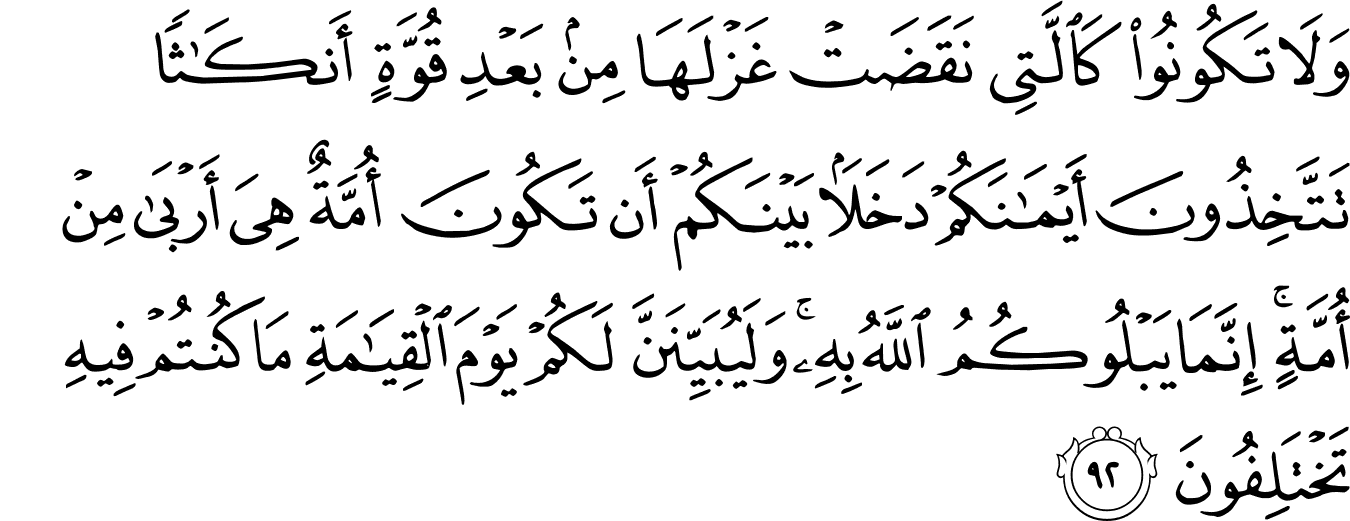 وَلَا تَكُونُوا۟ كَٱلَّتِى نَقَضَتْ غَزْلَهَا مِنۢ بَعْدِ قُوَّةٍ أَنكَـٰثًا
تَتَّخِذُونَ أَيْمَـٰنَكُمْ دَخَلًۢا بَيْنَكُمْ أَن تَكُونَ أُمَّةٌ هِىَ أَرْبَىٰ مِنْ
أُمَّةٍ ۚ إِنَّمَا يَبْلُوكُمُ ٱللَّهُ بِهِۦ ۚ وَلَيُبَيِّنَنَّ لَكُمْ يَوْمَ ٱلْقِيَـٰمَةِ مَا كُنتُمْ فِيهِ
تَخْتَلِفُونَ ٩٢